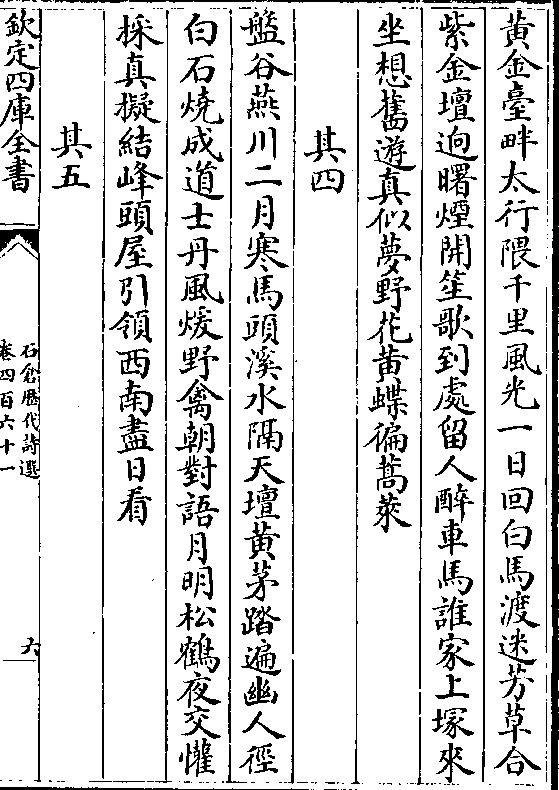 黄金臺畔太行隈千里風光一日回白馬渡迷芳草合
紫金壇逈曙煙開笙歌到處留人醉車馬誰家上塚來
坐想舊遊真似夢野花黄蝶徧蒿萊
其四
盤谷燕川二月寒馬頭溪水隔天壇黄茅踏遍幽人徑
白石燒成道士丹風煖野禽朝對語月明松鶴夜交懽
採真擬結峰頭屋引領西南盡日看
其五
欽定四庫全書
石倉歷代詩選
卷四百六十一
六